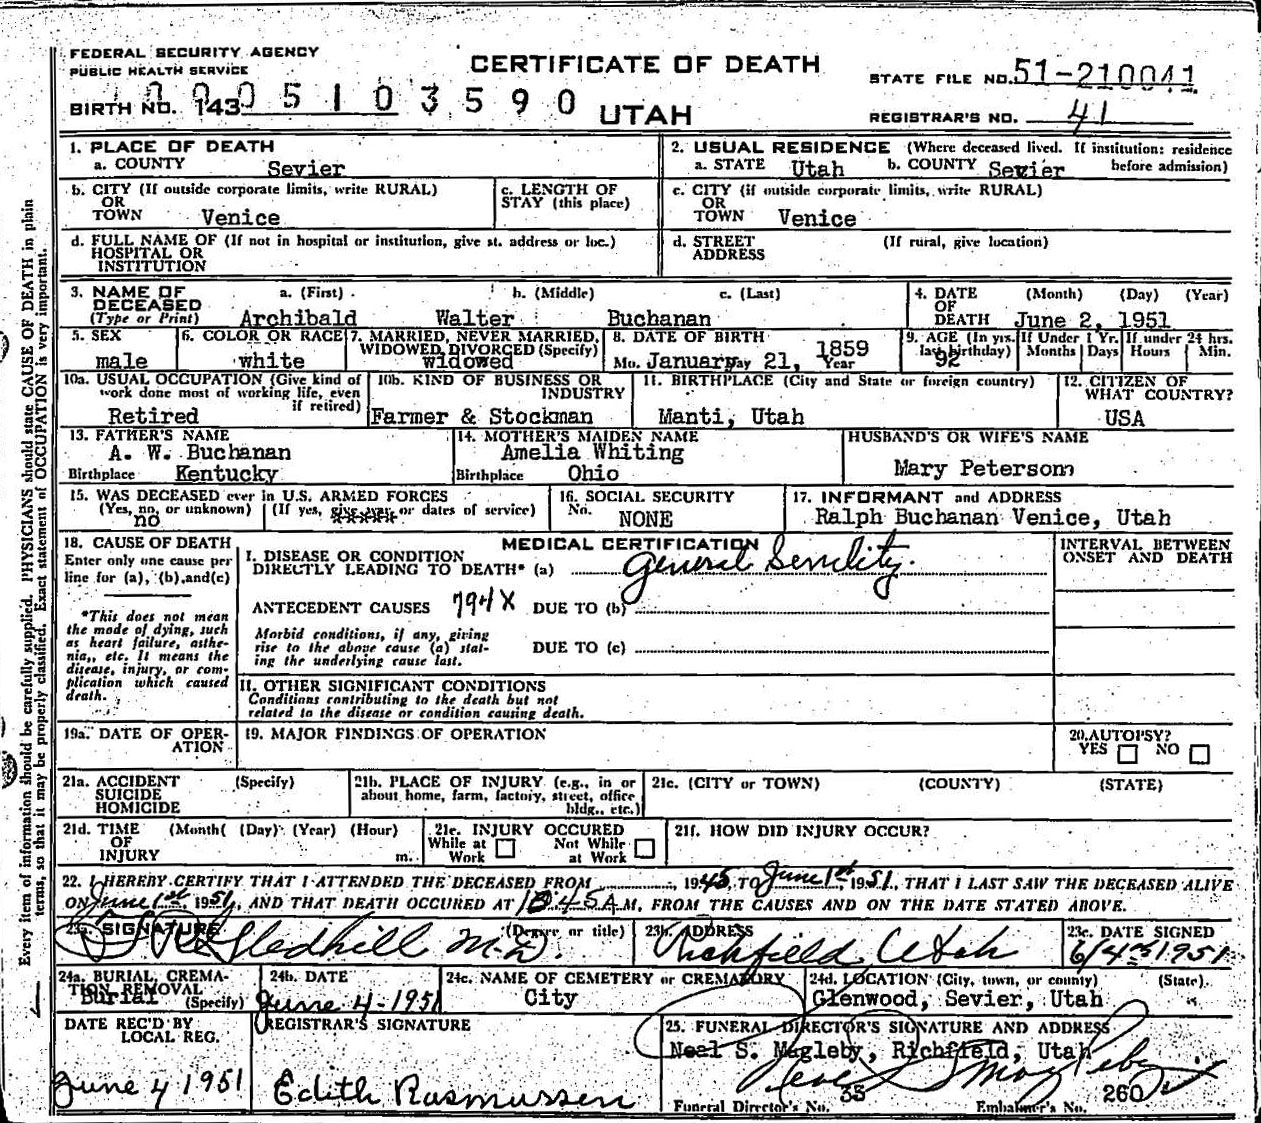 FEDERAL SECURITY AGENCY
PUBLIC HEALTH SERVICE
CERTIFICATE OF DEATH
UTAH
STATE FILE NO. 51-210041
BIRTH NO. 143 05103590
REGISTRAR'S NO. 41
1. PLACE OF DEATH
a. COUNTY Sevier
2. USUAL RESIDENCE (Where deceased lived. If institution: residence before admission)
a. STATE Utah b. COUNTY Sevier
b. CITY (If outside corporate limits, write RURAL)
OR
TOWN Venice
c. LENGTH OF
STAY (this place)
c. CITY (if outside corporate limits, write RURAL)
OR
TOWN Venice
d. FULL NAME OF (If not in hospital or institution, give st. address or loc.)
HOSPITAL OR
INSTITUTION
d. STREET (If rural, give location)
ADDRESS
3. NAME OF a. (First) b. (Middle) c. (Last)
DECEASED
(Type or Print) Archibald Walter Buchanan
4. DATE (Month) (Day) (Year)
OF
DEATH June 2, 1951
5. SEX
male
6. COLOR OR RACE
white
7. MARRIED, NEVER MARRIED,
WIDOWED, DIVORCED (Specify)
widowed
8. DATE OF BIRTH
Mo. January Day 21, 1859 Year
9. AGE (In yrs. last birthday) 92
If Under 1 Yr. Months Days
If under 24 hrs. Hours Min.
10a. USUAL OCCUPATION (Give kind of
work done most of working life, even
if retired)
Retired
10b. KIND OF BUSINESS OR
INDUSTRY
Farmer & Stockman
11. BIRTHPLACE (City and State or foreign country)
Manti, Utah
12. CITIZEN OF
WHAT COUNTRY?
USA
13. FATHER'S NAME
A. W. Buchanan
Birthplace Kentucky
14. MOTHER'S MAIDEN NAME
Amelia Whiting
Birthplace Ohio
HUSBAND'S OR WIFE'S NAME
Mary Peterson
15. WAS DECEASED ever in U.S. ARMED FORCES
(Yes, no, or unknown) (If yes, give war or dates of service)
no ******
16. SOCIAL SECURITY
No. NONE
17. INFORMANT and ADDRESS
Ralph Buchanan Venice, Utah
18. CAUSE OF DEATH
Enter only one cause per
line for (a), (b), and (c)
*This does not mean
the mode of dying, such
as heart failure, asthe-
nia,, etc. It means the
disease, injury, or com-
plication which caused
death.
MEDICAL CERTIFICATION
I. DISEASE OR CONDITION
DIRECTLY LEADING TO DEATH* (a) General Senility.
ANTECEDENT CAUSES 794X DUE TO (b)
Morbid conditions, if any, giving
rise to the above cause (a) stat-
ing the underlying cause last.
DUE TO (c)
II. OTHER SIGNIFICANT CONDITIONS
Conditions contributing to the death but not
related to the disease or condition causing death.
INTERVAL BETWEEN
ONSET AND DEATH
19a. DATE OF OPER-
ATION
19. MAJOR FINDINGS OF OPERATION
20. AUTOPSY?
YES NO
21a. ACCIDENT (Specify)
SUICIDE
HOMICIDE
21b. PLACE OF INJURY (e.g., in or
about home, farm, factory, street, office
bldg., etc.)
21c. (CITY or TOWN) (COUNTY) (STATE)
21d. TIME (Month( (Day) (Year) (Hour)
OF
INJURY m.
21e. INJURY OCCURED
While at Work Not While at Work
21f. HOW DID INJURY OCCUR?
22. I HEREBY CERTIFY THAT I ATTENDED THE DECEASED FROM , 1945, TO June 1st, 1951, THAT I LAST SAW THE DECEASED ALIVE
ON June 1st 1951, AND THAT DEATH OCCURED AT 1045 A M, FROM THE CAUSES AND ON THE DATE STATED ABOVE.
23. SIGNATURE (Degree or title)
Gledhill M.D.
23b. ADDRESS
Richfield Utah
23c. DATE SIGNED
6/4th 1951
24a. BURIAL, CREMA-
TION REMOVAL
Burial (Specify)
24b. DATE
June 4-1951
24c. NAME OF CEMETERY or CREMATORY
City
24d. LOCATION (City, town, or county) (State).
Glenwood, Sevier, Utah
DATE REC'D BY
LOCAL REG.
June 4 1951
REGISTRAR'S SIGNATURE
Edith Rasmussen
25. FUNERAL DIRECTOR'S SIGNATURE AND ADDRESS
Neal S. Magleby, Richfield, Utah
Neal S Magleby
Funeral Director's No. 35 Embalmer's No. 260
Every item of information should be carefully supplied. PHYSICIANS should state CAUSE OF DEATH in plain
terms, so that it may be properly classified. Exact statement of OCCUPATION is very important.